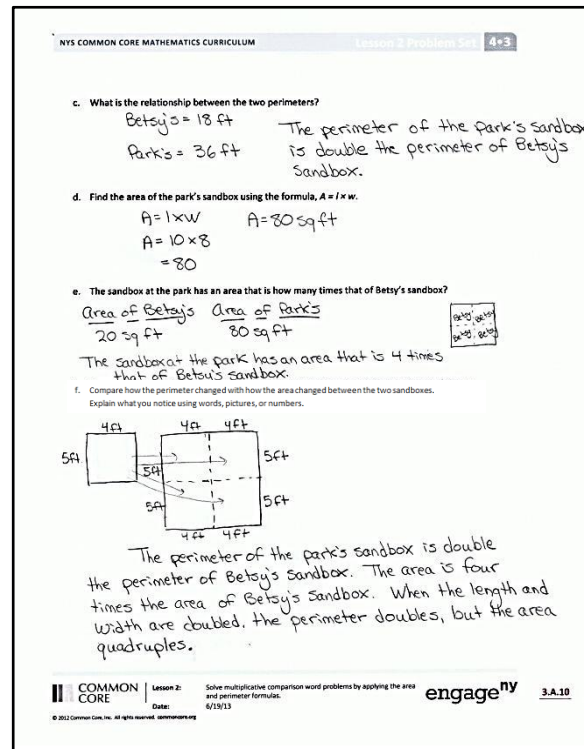 NYS COMMON CORE MATHEMATICS CURRICULUM Lesson 2 Problem Set 4•3
c. What is the relationship between the two perimeters?
Betsy's = 18 ft
Park's = 36 ft
The perimeter of the Park's sandbox
is double the perimeter of Betsy's
Sandbox.
d. Find the area of the park's sandbox using the formula, A = l × w.
A = l×w A = 80 sq ft
A = 10 × 8
= 80
e. The sandbox at the park has an area that is how many times that of Betsy's sandbox?
Area of Betsy's Area of Park's
20 sq ft 80 sq ft
Betsy Betsy
Betsy Betsy
The sandbox at the park has an area that is 4 times
that of Betsy's sandbox.
f. Compare how the perimeter changed with how the area changed between the two sandboxes.
Explain what you notice using words, pictures, or numbers.
4ft 4ft 4ft
5ft 5ft 5ft
5ft 5ft
4ft 4ft
The perimeter of the park's sandbox is double
the perimeter of Betsy's sandbox. The area is four
times the area of Betsy's Sandbox. When the length and
width are doubled, the perimeter doubles, but the area
quadruples.
COMMON CORE
Lesson 2: Solve multiplicative comparison word problems by applying the area
and perimeter formulas.
Date: 6/19/13
engageny
3.A.10
© 2012 Common Core, Inc. All rights reserved. commoncore.org